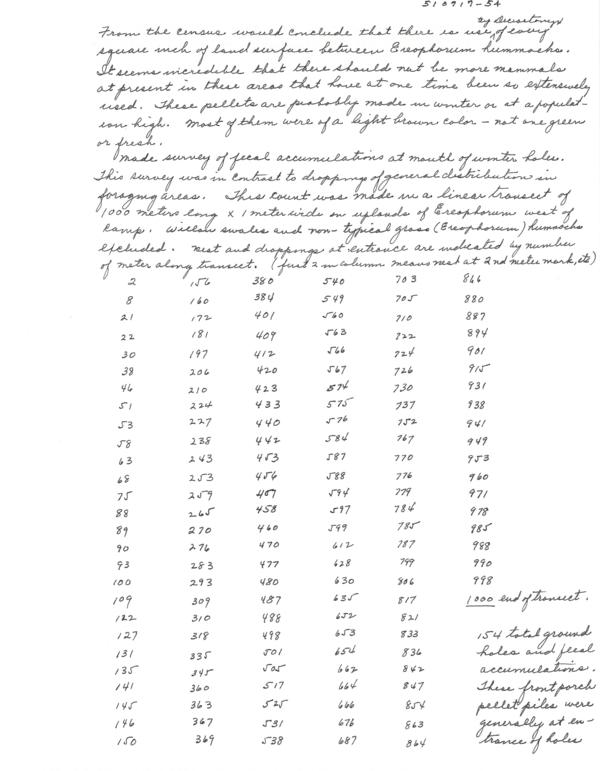 510717-54
by Dicrostonyx
From the census would conclude that there is use of every
square inch of land surface between Ereophorum hummocks.
It seems incredible that there should not be more mammals
at present in these areas that have at one time been so extensively
used. These pellets are probably made in winter or at a populat-
ion high. Most of them were of a light brown color - not one green
or fresh.
Made survey of fecal accumulations at mouth of winter holes.
This survey was in contrast to dropping of general distribution in
foraging areas. This count was made in a linear transect of
1000 meters long x 1 meter wide on uplands of Ereophorum west of
camp. Willow swales and non-typical grass (Ereophorum) hummocks
excluded. Nest and droppings at entrance are indicated by number
of meter along transect. (first 2 in column means nest at 2nd meter mark, etc)
2 156 380 540 703 866
8 160 384 549 705 880
21 172 401 560 710 887
22 181 409 563 722 894
30 197 412 566 724 901
38 206 420 567 726 915
46 210 423 574 730 931
51 224 433 575 737 938
53 227 440 576 752 941
58 238 442 584 767 949
63 243 453 587 770 953
68 253 456 588 776 960
75 259 457 594 779 971
88 265 458 597 784 978
89 270 460 599 785 985
90 276 470 612 787 988
93 283 477 628 799 990
100 293 480 630 806 998
109 309 487 635 817 1000 end of transect.
122 310 488 652 821
127 318 498 653 833 154 total ground
131 335 501 654 836 holes and fecal
135 345 505 662 842 accumulations.
141 360 517 664 847 These front porch
145 363 525 666 854 pellet piles were
146 367 531 676 863 generally at en-
150 369 538 687 864 trance of holes